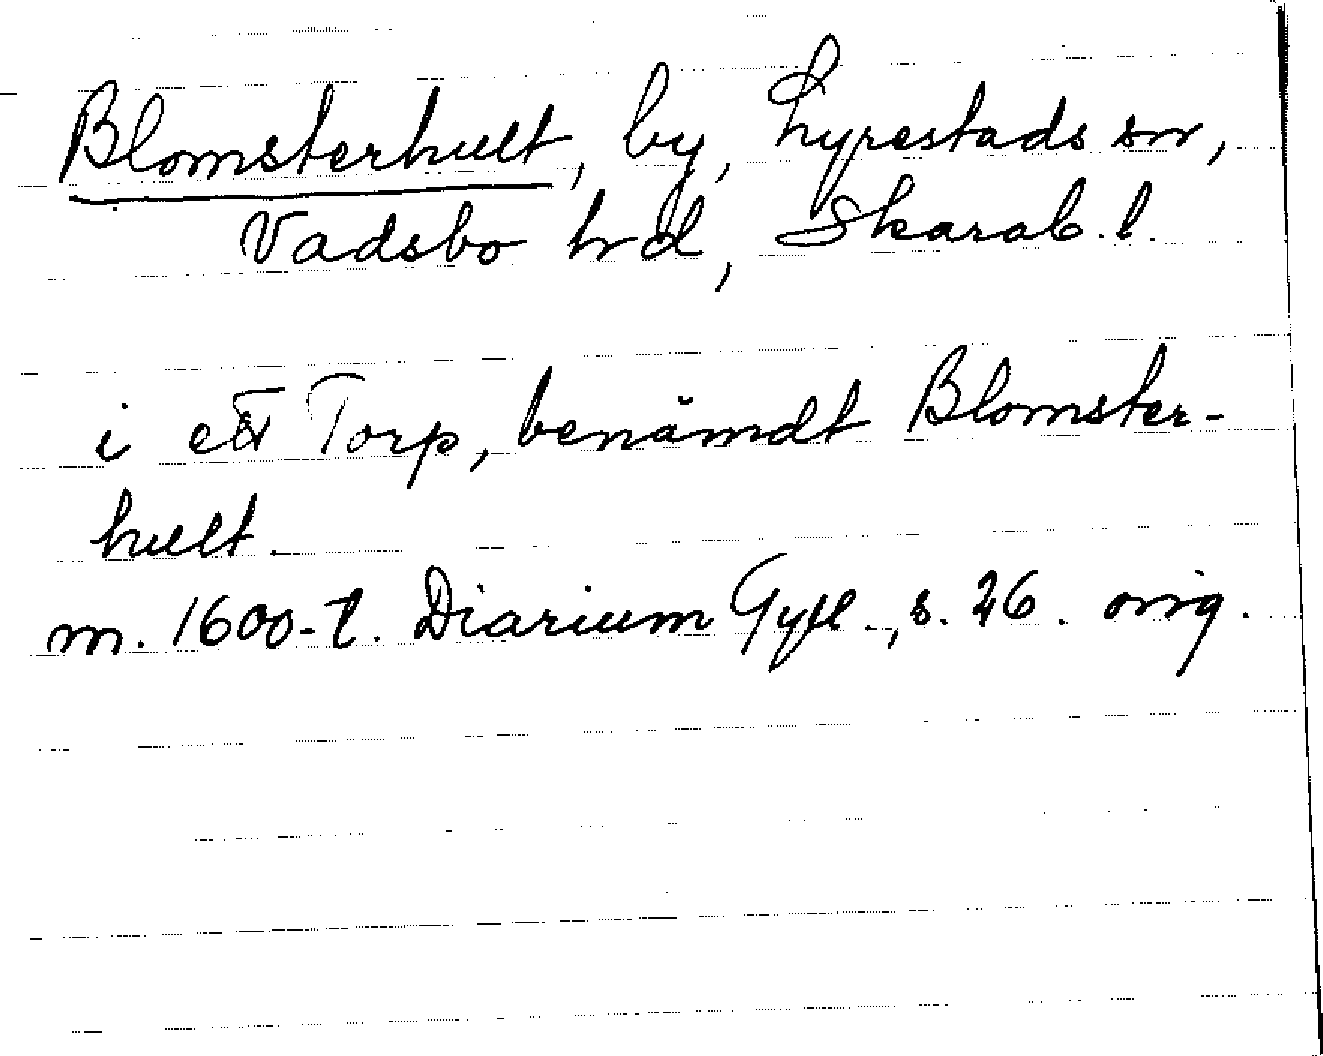 Blomsterhult, by, Lyrestads sn,
Vadsbo hd, Skarab. l.
i ett Torp, benämdt Blomster-
hult.
m. 1600-t. Diarium Gyll., s. 26. orig.